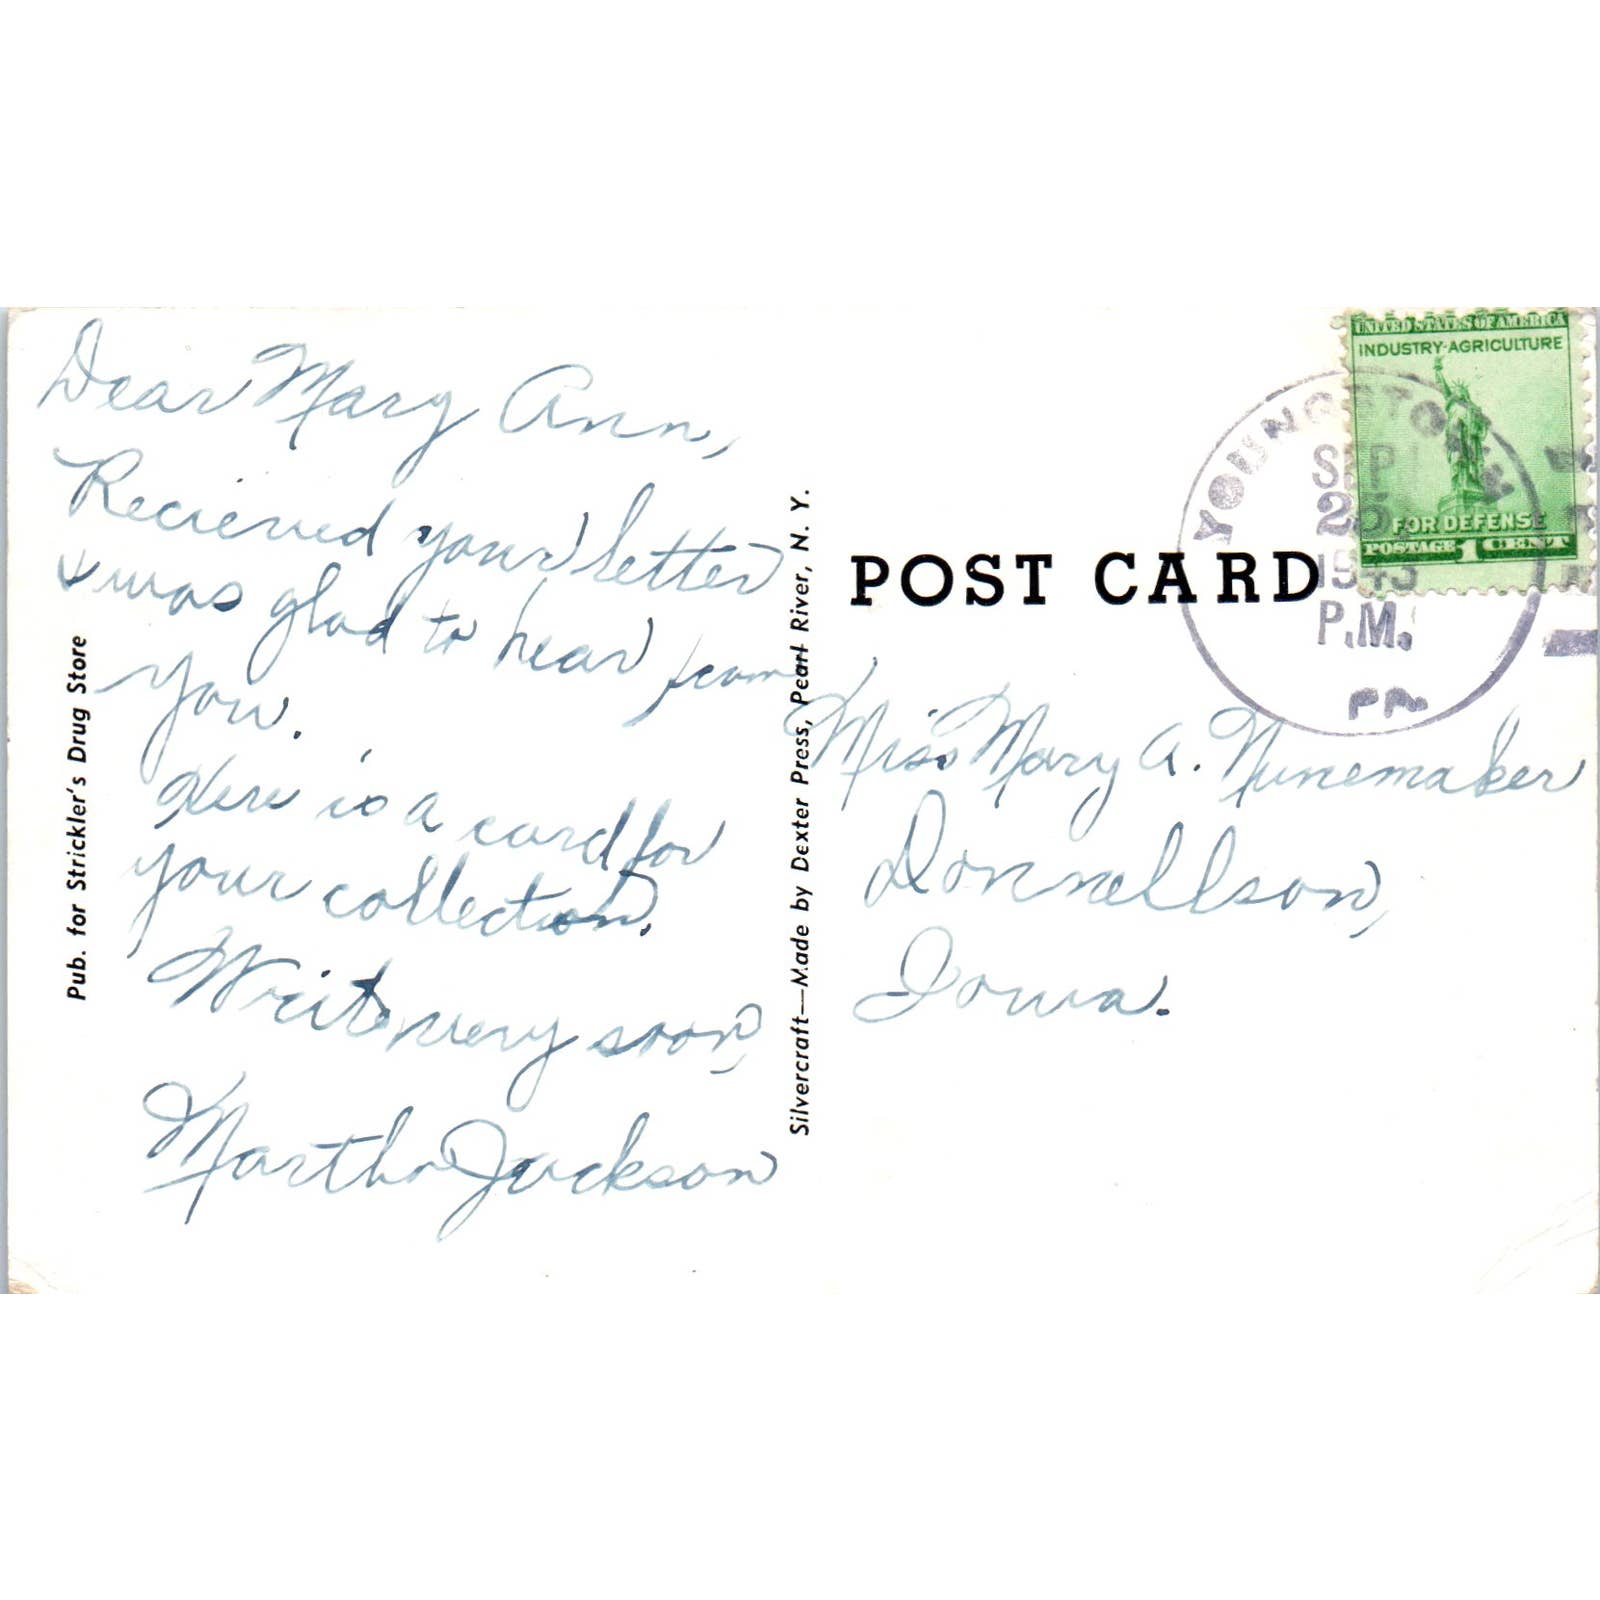 Dear Mary Ann,
Recieved your letter
& was glad to hear from
you.
Here is a card for
your collection.
Write very soon,
Martha Jackson
Pub. for Strickler's Drug Store
Silvercraft—Made by Dexter Press, Pearl River, N. Y.
POST CARD
UNITED STATES OF AMERICA
INDUSTRY·AGRICULTURE
FOR DEFENSE
POSTAGE 1 CENT
YOUNGSTOWN
SEP
25
1943
P.M.
PA
Miss Mary A. Nunemaker
Donnellson,
Iowa.